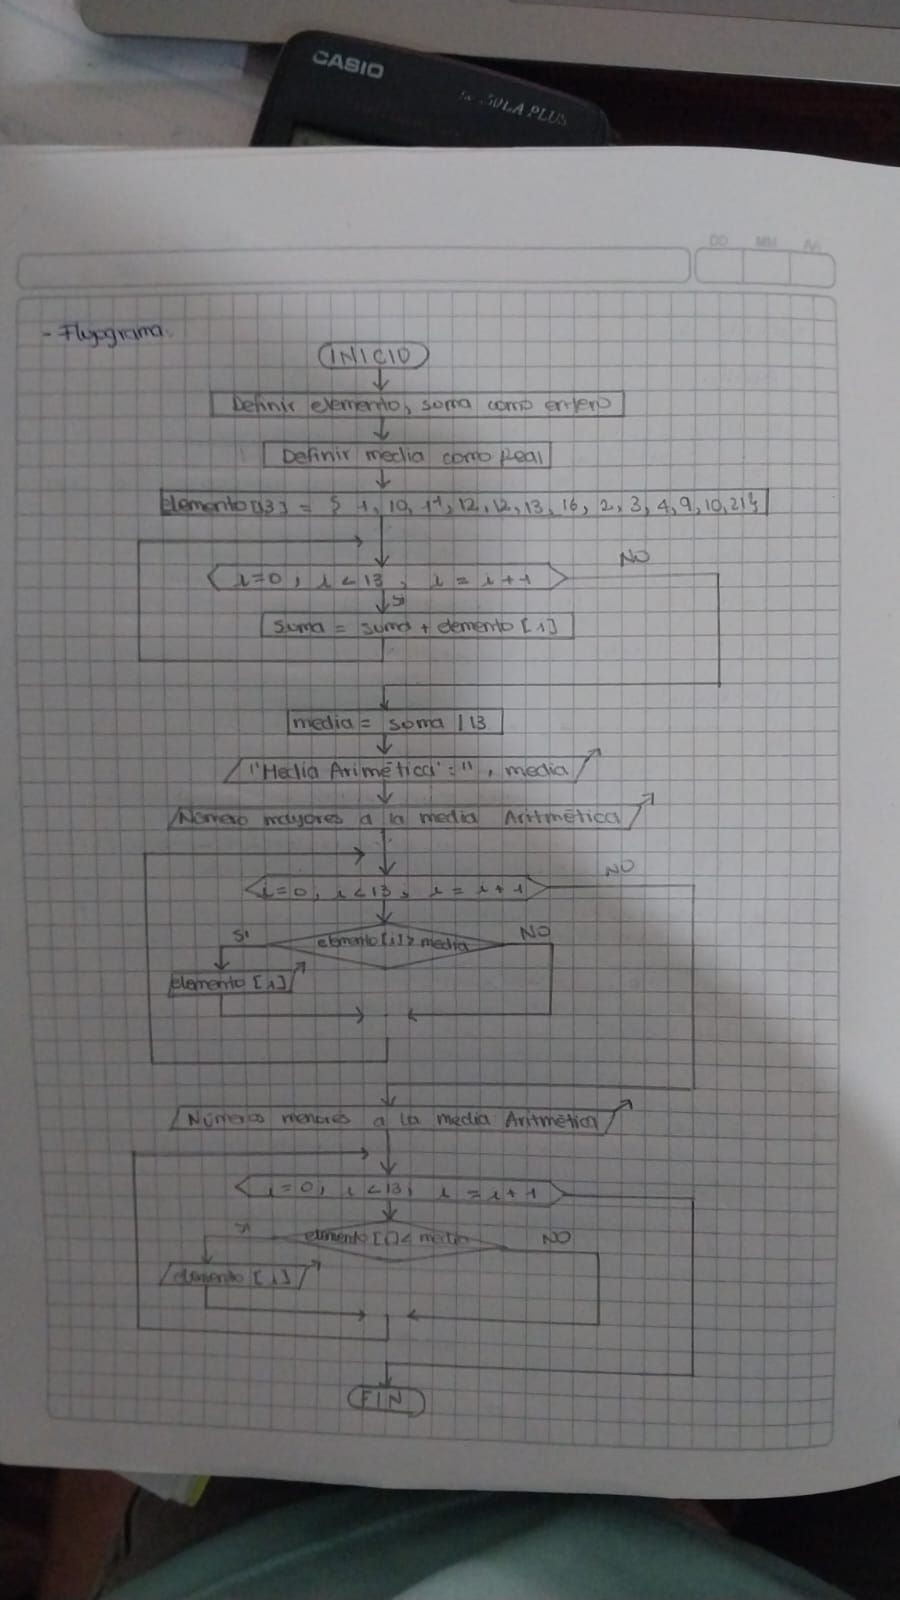 CASIO
PLUS
DD MM AA
- Flujograma.
INICIO
Definir elemento, suma como entero
Definir media como Real
elemento[13] = { 1, 10, 11, 12, 12, 13, 16, 2, 3, 4, 9, 10, 21}
i=0, i < 13, i = i + 1
NO
Si
suma = suma + elemento [i]
media = suma / 13
"Media Arimética = ", media
Número mayores a la media Aritmética
i=0, i < 13, i = i + 1
NO
Si
elemento [i] > media
NO
elemento [i]
Números menores a la media Aritmética
i=0, i < 13, i = i + 1
Si
elemento [i] < media
NO
elemento [i]
FIN